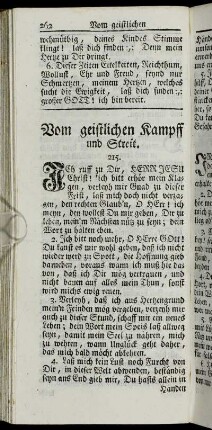 262 Vom geistlichen
wehmütig, deines Kindes Stimme
klingt! laß dich finden ,: Denn mein
Hertz zu Dir dringt.
6. Dieser Zeiten Eitelkeiten, Reichthum,
Wollust, Ehr und Freud, seynd nur
Schmertzen, meinem Hertzen, welches
sucht die Ewigkeit, laß dich finden ,:
grosser GOtt! ich bin bereit.
Vom geistlichen Kampff
und Streit.
215.
Ich ruff zu Dir, HERR JESU
Christ! ich bitt erhör mein Kla-
gen, verleyh mir Gnad zu dieser
Frist, laß mich doch nicht verza-
gen, den rechten Glauben, O HErr! ich
meyn, den wollest Du mir geben, Dir zu
leben, mein'm Nächsten nütz zu seyn; dein
Wort zu halten eben.
2. Ich bitt noch mehr, O HErre GOtt!
Du kanst es mir wohl geben, daß ich nicht
wieder werd zu Spott, die Hoffnung gieb
darneben, voraus wann ich muß hie dar-
von, daß ich Dir mög vertrauen, und
nicht bauen auf alles mein Thun, sonst
wird michs ewig reuen.
3. Verleyh, daß ich aus Hertzengrund
mein'n Feinden mög vergeben, verzeyh mir
auch zu dieser Stund, schaff mir ein neues
Leben; dein Wort mein Speis laß allweg
seyn, damit mein Seel zu nähren, mich
zu wehren, wann Unglück geht daher,
das mich bald möcht abkehren.
4. Laß mich kein Lust noch Furcht von
Dir, in dieser Welt abwenden, beständig
seyn ans End gieb mir, Du hasts allein in
Handen